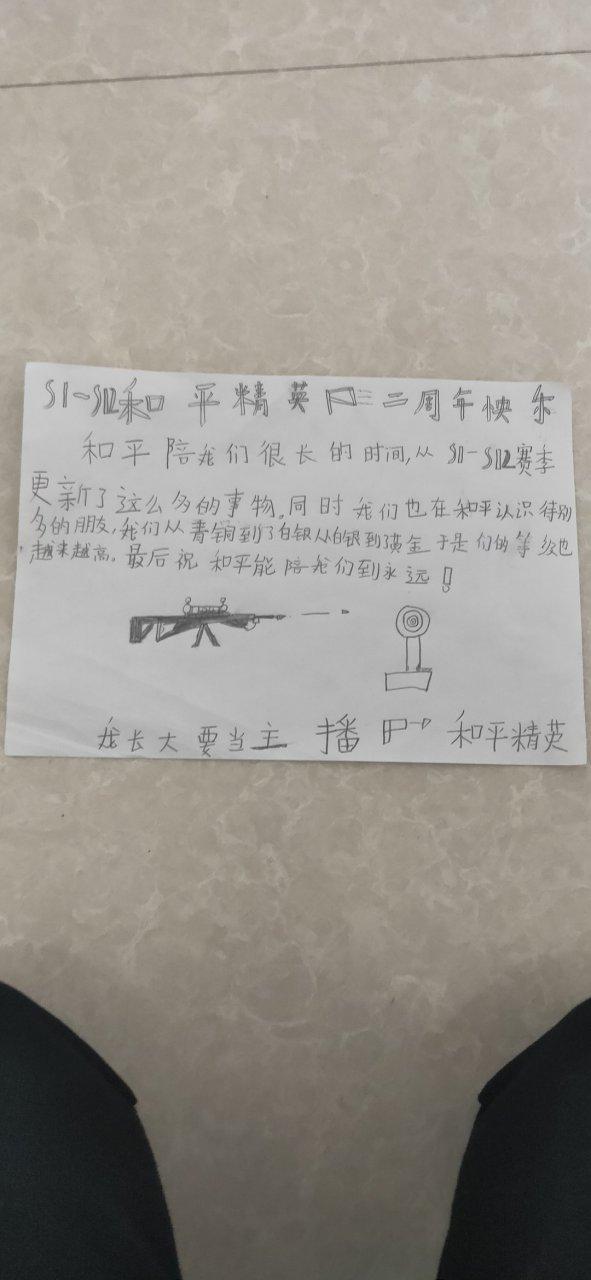 S1-S12和平精英 二周年快乐
和平陪我们很长的时间,从S11-S12赛季
更新了这么多的事物。同时我们也在和平认识特别
多的朋友,我们从青铜到了白银从白银到黄金于是们的等级也
越来越高。最后祝和平能陪我们到永远!
我长大要当主播 和平精英